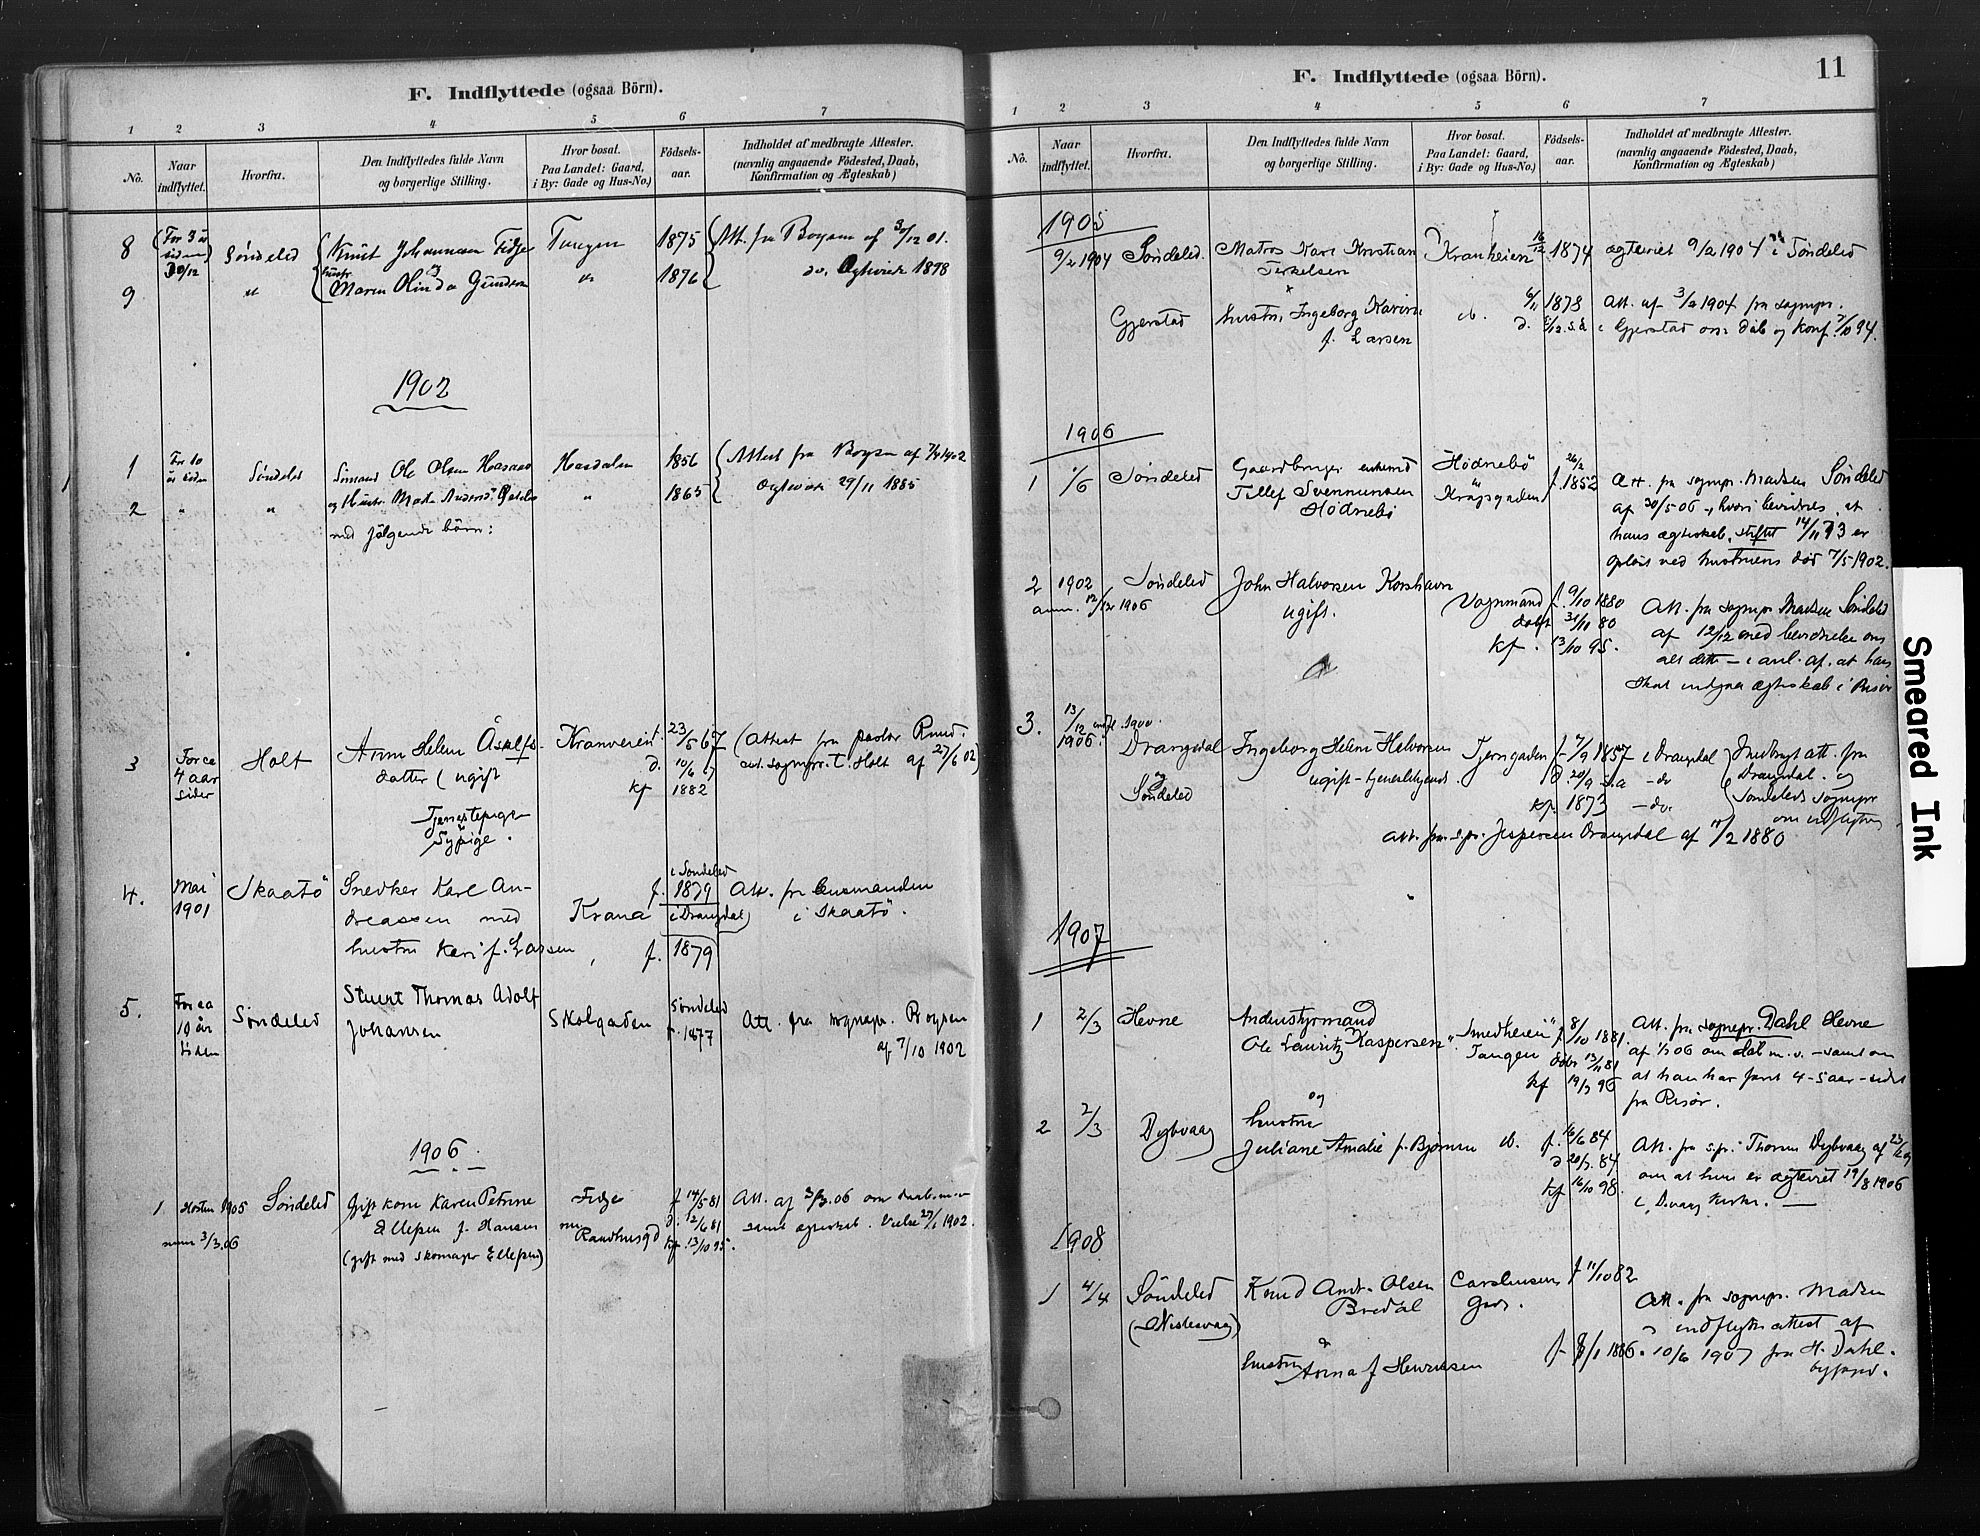 F. Indflyttede (ogsaa Börn).
1 2 3 4 5 6 7
No.
Naar indflyttet.
Hvorfra.
Den Indflyttedes fulde Navn
og borgerlige Stilling.
Hvor bosat.
Paa Landet: Gaard,
i By: Gade og Hus-No.)
Födsels-
aar.
Indholdet af medbragte Attester.
(navnlig angaaende Födested, Daab,
Konfirmation og Ægteskab)
8 For 3 år siden 30/12 Søndeled Knut Johannsen Fidje Tangen 1875 Att. fra Boysen af 01.
9 " hustr. Maren Olinda Gunders " 1876 do. Ægtevie 1898
1902
1 For 10 år siden Søndeled Sömand Ole Olsen Hasdalen 1856 Attest fra Boysen af 1902
2 " " og Hustr. 1865 Ægtevie 29/11 1885
med følgende børn:
3 For ca 4 aar siden Holt Anna Helene Åsulfs- Kranveien 23/5 67 (Attest fra pastor Ruud.
datter (ugift d. 10/6 67 sognepr. t. Holt af 27/6 02)
kf 1882
Tjenestepige
Sypige.
4. Mai 1901 Skaatö Snedker Karl An- Krana f. i Søndeled 1879 Att. fra Lensmanden
dreassen med i Drangdal i Skaatö.
hustru Kari f. Larsen, f. 1879
5. For ca 10 år siden Søndeled Stuert Thomas Adolf Skolgaden Søndeled f. 1877 Att. fra sognepr. Boysen
Johansen af 7/10 1902
1906.
1 Høsten 1905 Søndeled Gift kone Karen Petrine Fidje f. 14/5 81 Att. af 3/3.06 om daab m.m
Ellefsen f. Hansen nu d. 12/6 81 samt ægteskab. Vielse 27/ 1902.
3/3.06 (gift med skomager Ellefsen) Raadhusgd kf. 13/10 95.
F. Indflyttede (ogsaa Börn). 11
1 2 3 4 5 6 7
No.
Naar indflyttet.
Hvorfra.
Den Indflyttedes fulde Navn
og borgerlige Stilling.
Hvor bosat.
Paa Landet: Gaard,
i By: Gade og Hus-No.)
Födsels-
aar.
Indholdet af medbragte Attester.
(navnlig angaaende Födested, Daab,
Konfirmation og Ægteskab)
1905
9/2 1904 Søndeled. Matros Karl Kristian Kranheien 1874 ægteviet 9/2 1904 i Søndeled
Terkelsen
Gjerstad hustru Ingeborg Karine do. 6/11 1873 Att. af 3/2 1904 fra sognepr.
f. Larsen d. 5/12 s.å. i Gjerstad om dåb og konf. 7/10 94.
1906
1 1/6 Søndeled Gaardbruger enkemd Hödnebö 26/2 f. 1852 Att. fra sognepr. Madsen Søndeled
Tellef Svennunsen Kragsgaden af 30/5 06, hvori bevidnes, at
Hödnebö hans ægteskab, stiftet 14/11 73 er
opløst ved hustruens død 7/5 1902.
2 1902 Søndeled John Halvorsen Korshavn Vognmand f. 9/10 1880 Att. fra sognepr Madsen Søndeled
anm. 12/12 1906 ugift. døbt 31/10 80 af 12/12 med bevidnelse om
kf. 13/10 95. alt dette - i anl. af. at han
skal indgaa ægteskab i Risör
3. 13/12 1906. indfl. 1900. Drangedal Ingeborg Helene Halvorsen Tjerngaden f. 7/9 1857 i Drangedal Medbragt att. fra
og ugift d 20/9 s.a - do Drangedal. og
Søndeled kf. 1873 - do. Søndeleds sognepr
om indflytning
Att. fra s.pr. Jespersen Drangedal af 11/2 1880
1907
1 2/3 Hevne Anden styrmand "Smedheien" f. 8/10 1881. Att. fra sognepr. Dahl Hevne
Ole Lauritz Kaspersen Tangen døbt 13/11 81 af 06 om dåb m.v. - samt om
kf 19/ 96 at han har faret 4-5 aar - sidst
fra Risør.
og
2 2/3 Dybvaag hustru
Juliane Amalie f. Bjørnsen do. f. 16/6 84 Att. fra s.pr. Thorsen Dybvaag af
d 20/7. 84 om at hun er ægteviet 19/8 1906
kf 16/10 98. i Dvaag kirke.
1908
1 4/4 Søndeled Knud Andr. Olsen Carstensens f 11/10 82 Att. fra sognepr. Madsen
Bredal Gade. indflytn attest af
hustru Anna f Henriksen f. 8/1 1886. 10/6 1907 fra H. Dahl.
Smeared Ink